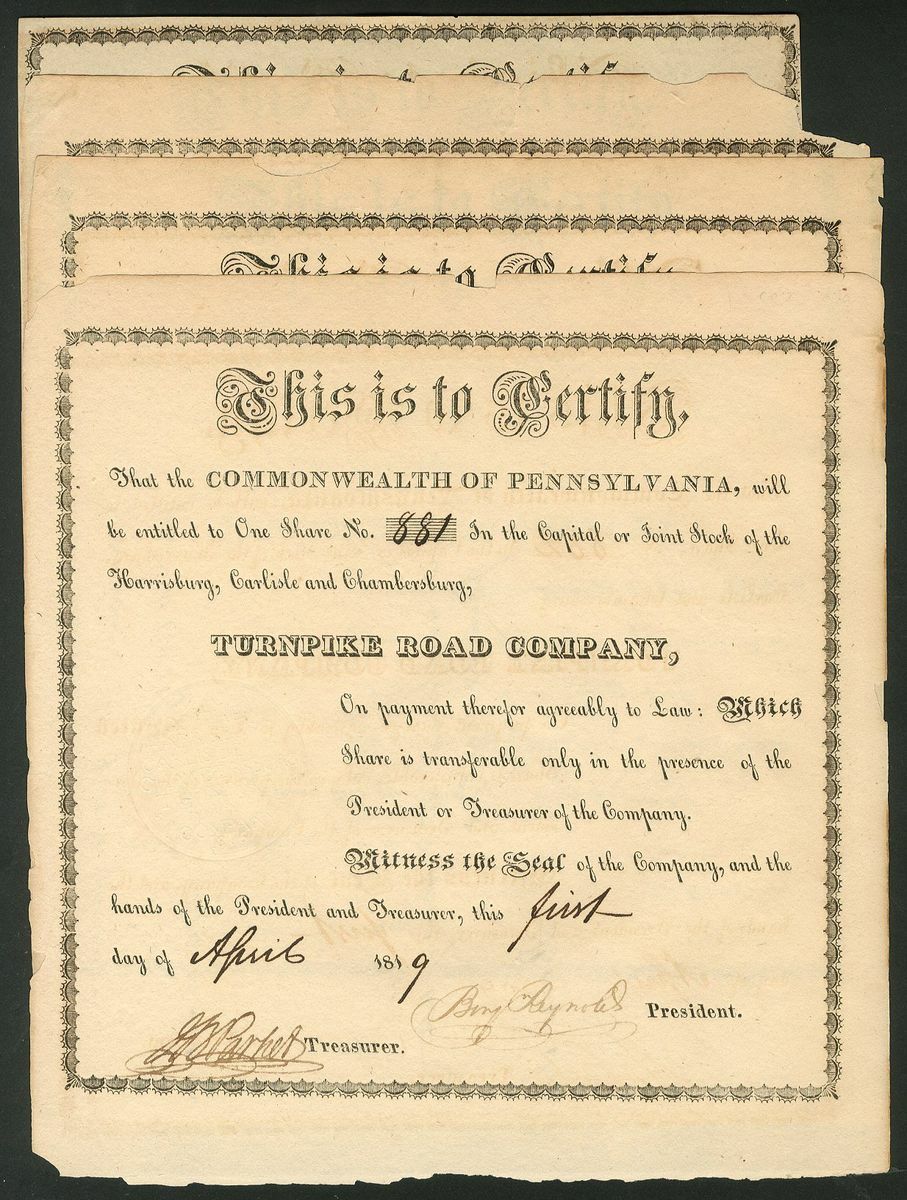 This is to Certify
This is to Certify,
That the COMMONWEALTH OF PENNSYLVANIA, will
be entitled to One Share No. 881 In the Capital or Joint Stock of the
Harrisburg, Carlisle and Chambersburg,
TURNPIKE ROAD COMPANY,
On payment therefor agreeably to Law: Which
Share is transferable only in the presence of the
President or Treasurer of the Company.
Witness the Seal of the Company, and the
hands of the President and Treasurer, this first
day of April 1819
Benj Reynolds President.
Parker Treasurer.